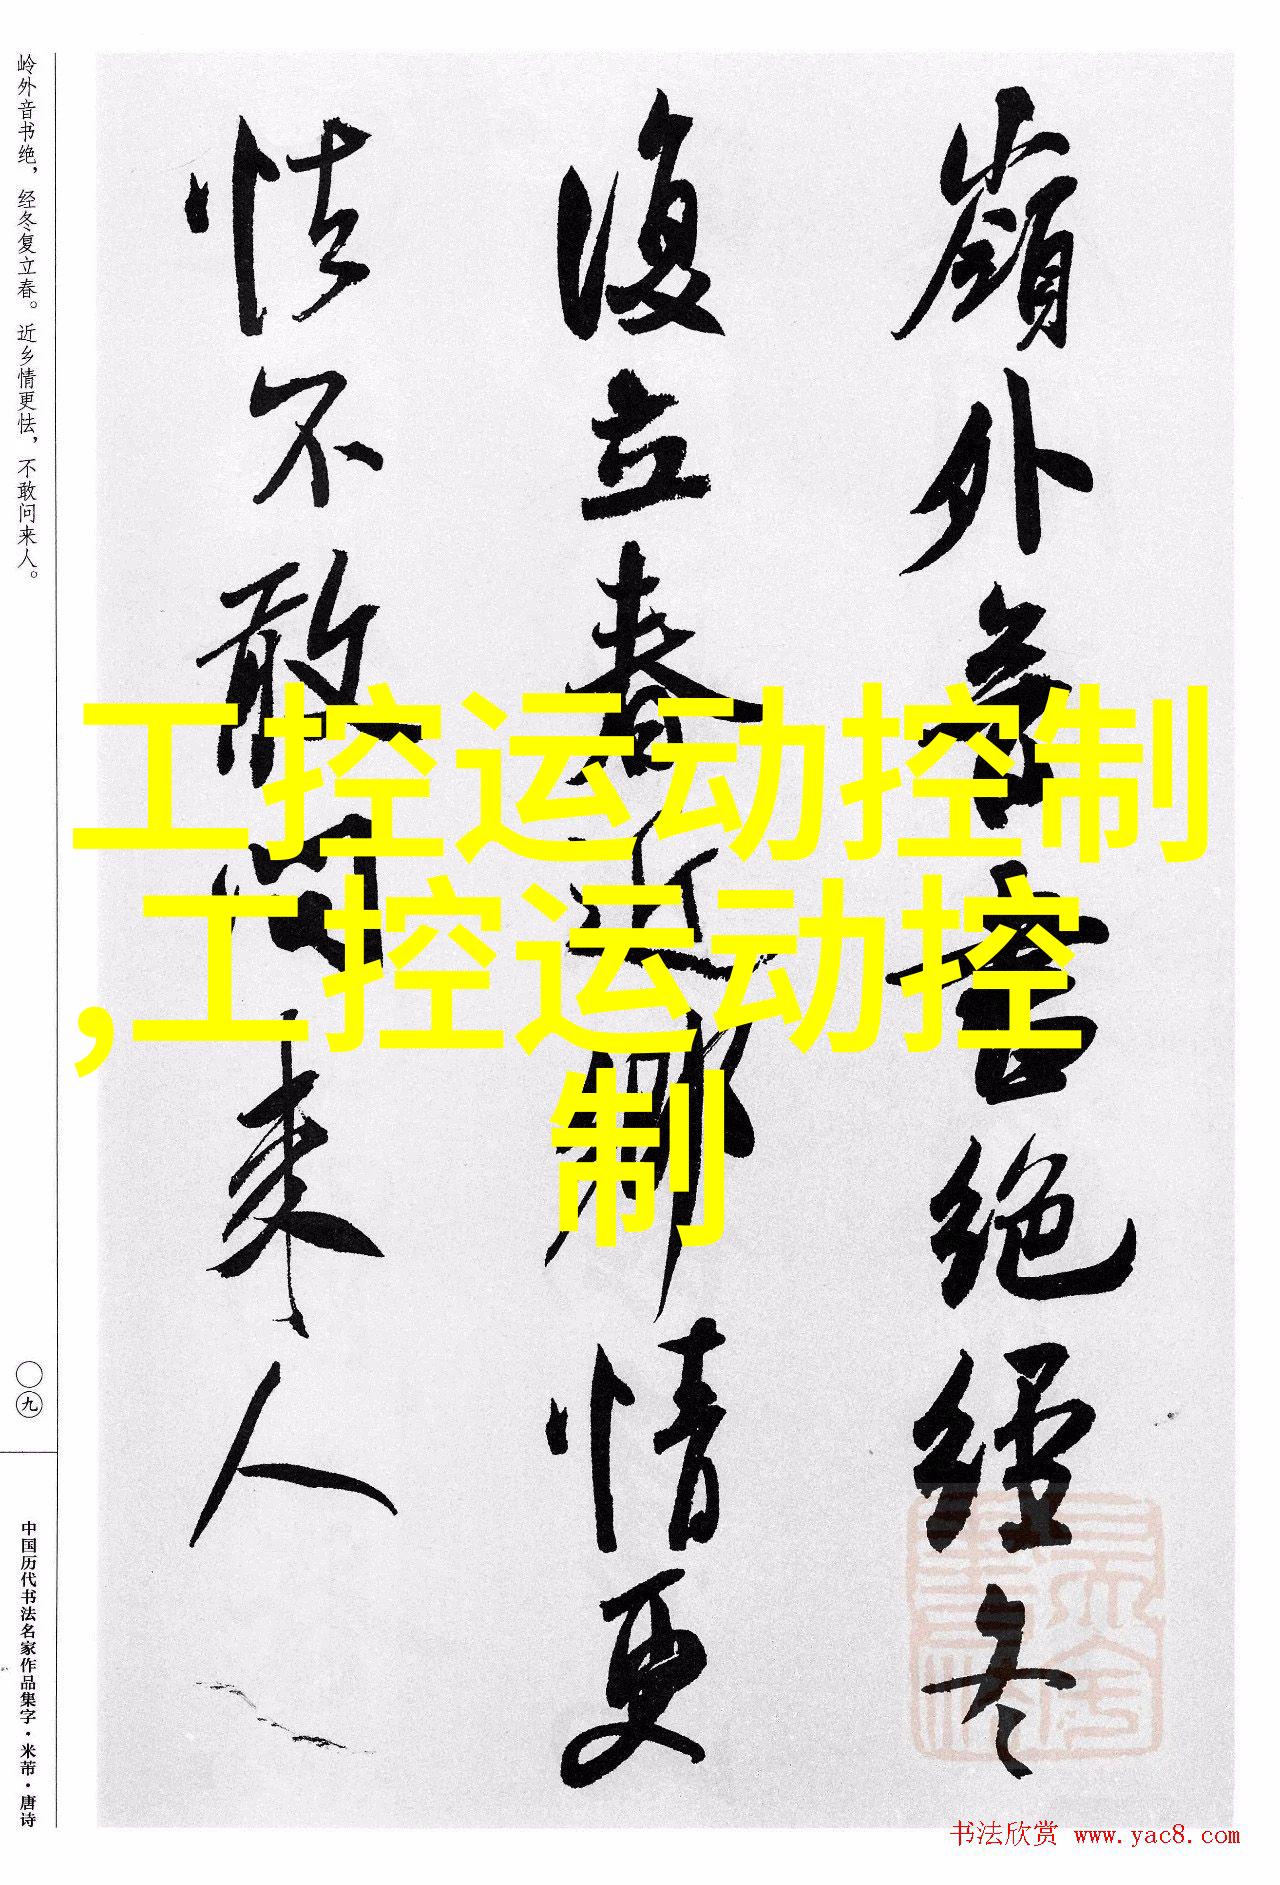 嶺外音書絕經冬
復立春近鄉情更
怯不敢問來人
岭外音书绝，经冬复立春。近乡情更怯，不敢问来人。
〇九
中国历代书法名家作品集字·米芾·唐诗
工控运动控制
,工控运动控
制
书法欣赏 www.yac8.com